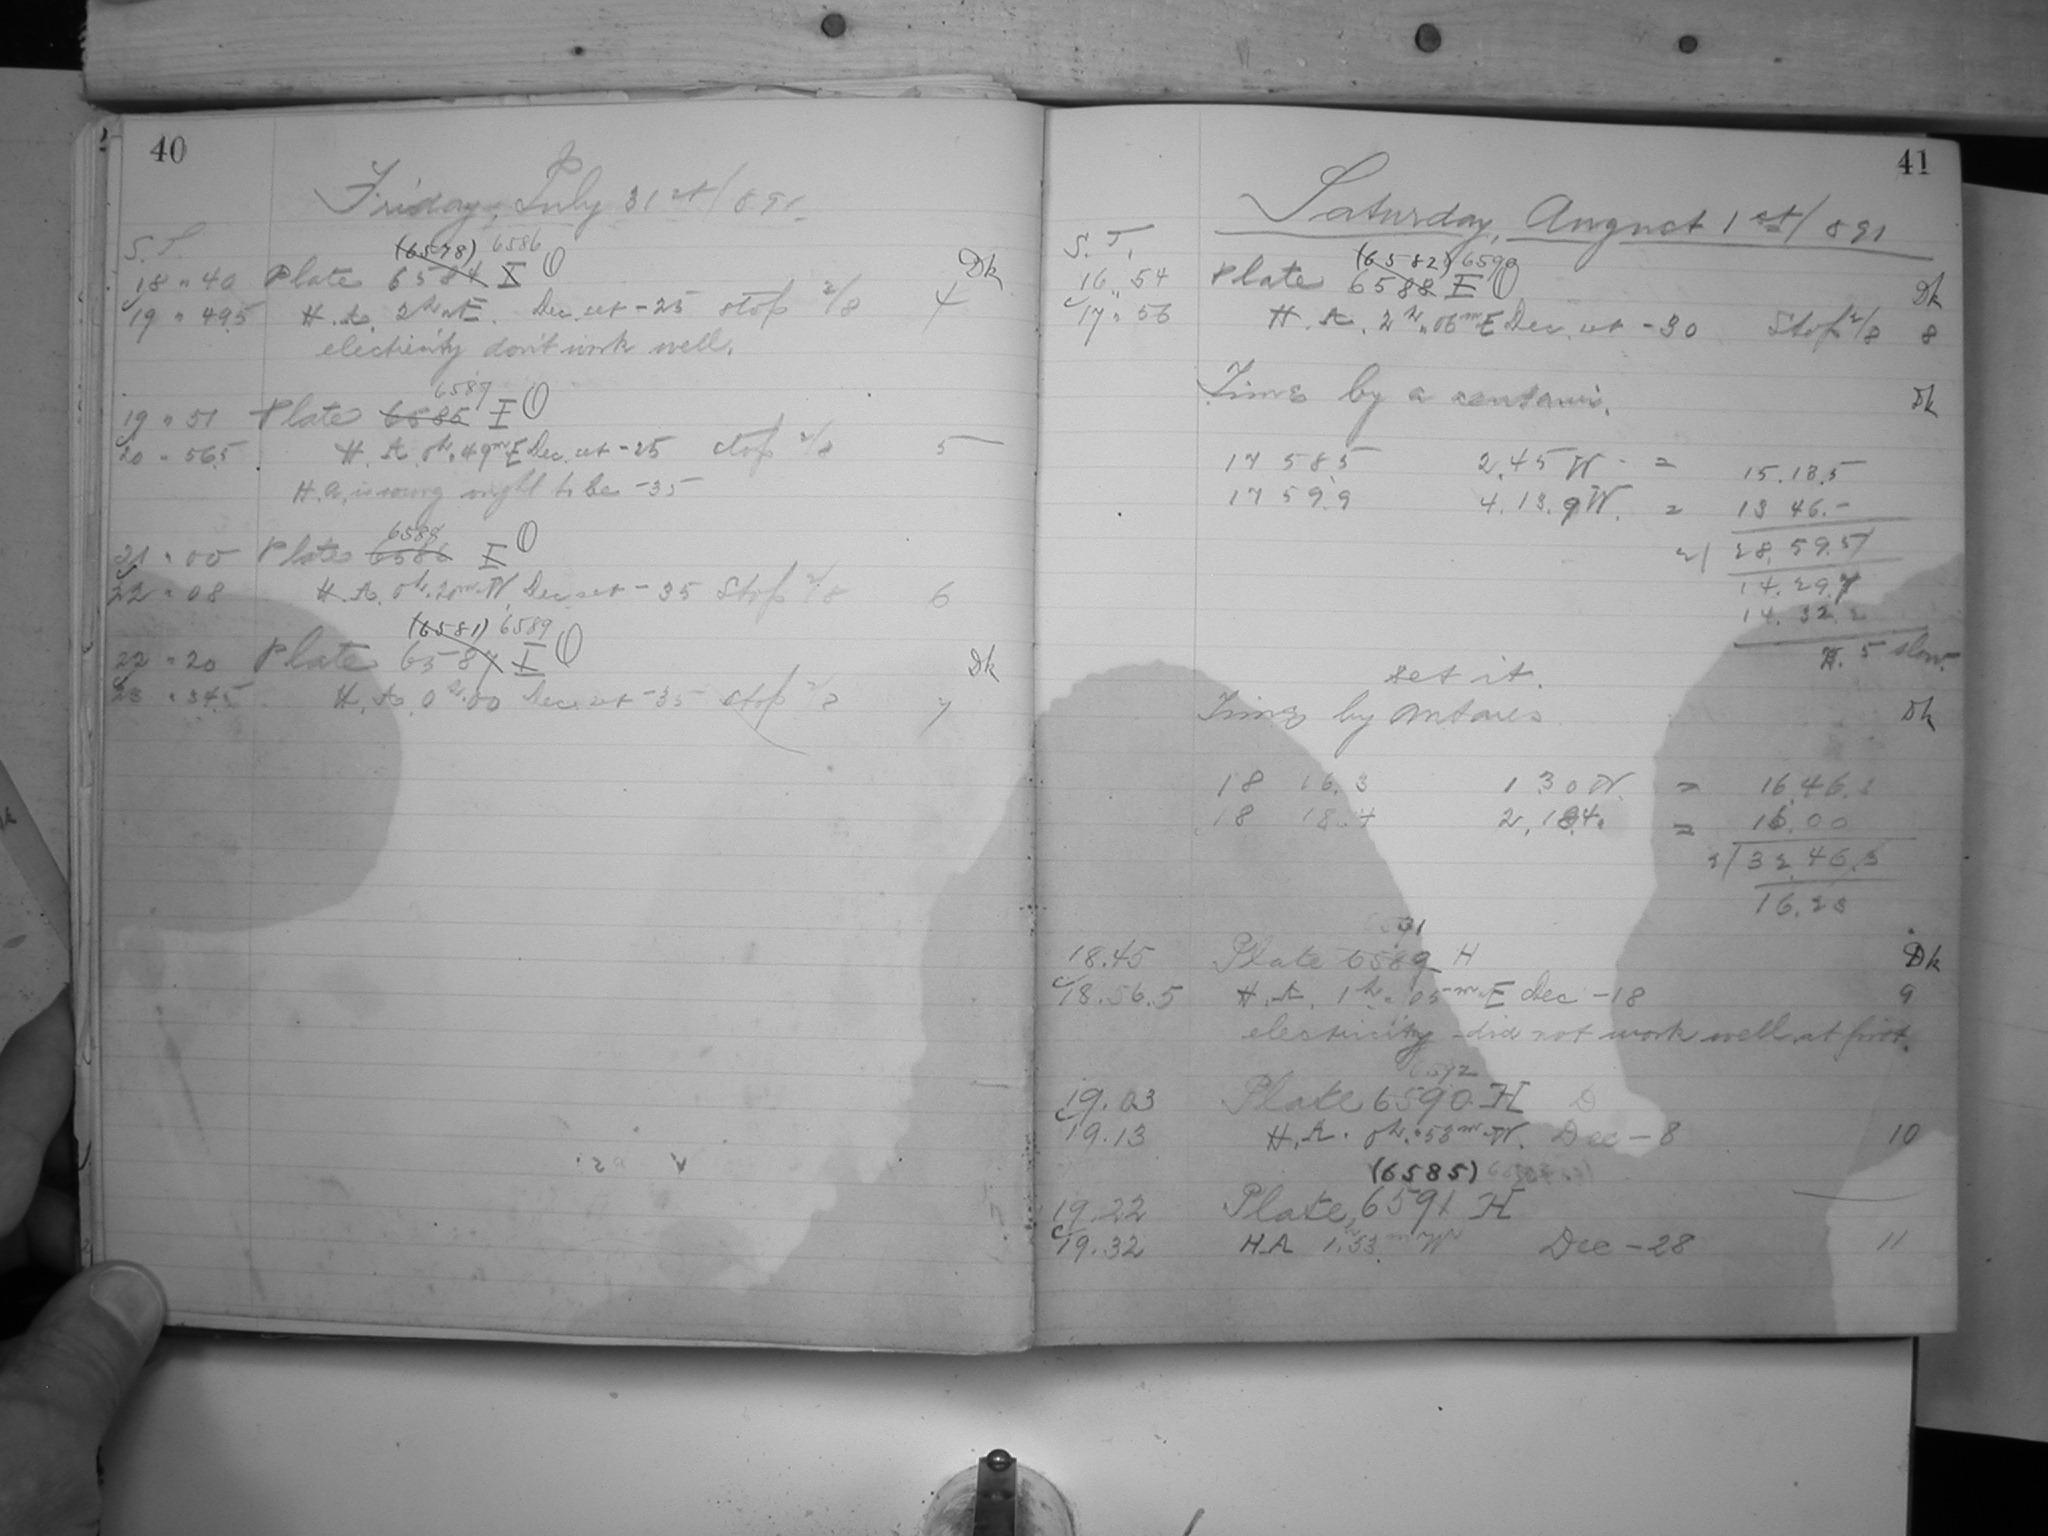 40
Friday, July 31st/891
S.T.
(6578) 6586
18 " 40 Plate 6584 I O Dk
19 " 49.5 H.A. 2h E. Dec. set -25 stop 2/8 4
electricity don't work well.
6587
19 " 51 Plate 6585 I O
20 " 56.5 H.A. 0h. 49m E Dec. set -25 stop 2/8 5
H.A. is wrong ought to be -35
6588
21 " 00 Plate 6586 I O
22 " 08 H.A. 0h. 20m W. Dec. set -35 Stop 2/8 6
(6581) 6589
22 " 20 Plate 6587 I O Dk
23 " 34.5 H.A. 0h. 00 Dec. set -35 stop 2/8 7
41
Saturday, August 1st/891
S.T.
(6582) 6590
16 " 54 Plate 6588 I O Dk
17 " 56 H.A. 2h. 06m E Dec. set -30 Stop 2/8 8
Time by a centauri. Dk
17 58.5 2.45 W. = 15.13.5
17 59.9 4.13.9 W. = 13 46.-
2/ 28.59.5
14.29.7
14.32.2
5 slow.
set it.
Time by Antares Dk
18 16.3 1.30 W. = 16.46.3
18 18.4 2.18.4. = 16.00
2/ 32.46.3
16.23
6591
18.45 Plate 6589 H Dk
18.56.5 H.A. 1h. 05m E Dec -18 9
electricity did not work well at first.
6592
19.03 Plate 6590 H D
19.13 H.A. 0h. 53m W. Dec -8 10
(6585)
19.22 Plate, 6591 H
19.32 H.A 1h.33m W Dec -28 11